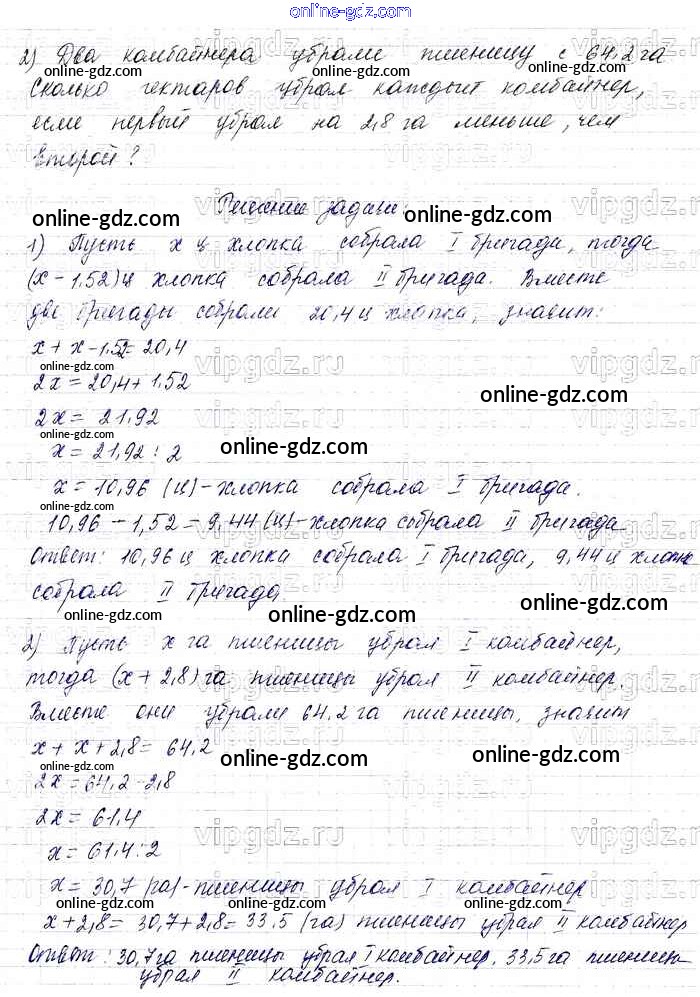 online-gdz.com
2) Два комбайнера убрали пшеницу с 64,2 га
online-gdz.com online-gdz.com
Сколько гектаров убрал каждый комбайнер,
если первый убрал на 2,8 га меньше, чем
второй?
Решение задачи:
online-gdz.com online-gdz.com
1) Пусть x ц хлопка собрала I бригада, тогда
(x - 1,52) ц хлопка собрала II бригада. Вместе
две бригады собрали 20,4 ц хлопка, значит:
x + x - 1,52 = 20,4
online-gdz.com
2x = 20,4 + 1,52
online-gdz.com
2x = 21,92
online-gdz.com
x = 21,92 : 2
online-gdz.com
x = 10,96 (ц) - хлопка собрала I бригада.
10,96 - 1,52 = 9,44 (ц) - хлопка собрала II бригада
Ответ: 10,96 ц хлопка собрала I бригада, 9,44 ц хлопка
собрала II бригада.
online-gdz.com online-gdz.com online-gdz.com
2) Пусть x га пшеницы убрал I комбайнер,
тогда (x + 2,8) га пшеницы убрал II комбайнер.
online-gdz.com online-gdz.com
Вместе они убрали 64,2 га пшеницы, значит
x + x + 2,8 = 64,2
online-gdz.com online-gdz.com online-gdz.com
2x = 64,2 - 2,8
2x = 61,4
x = 61,4 : 2
x = 30,7 (га) - пшеницы убрал I комбайнер
online-gdz.com online-gdz.com
x + 2,8 = 30,7 + 2,8 = 33,5 (га) пшеницы убрал II комбайнер
Ответ: 30,7 га пшеницы убрал I комбайнер, 33,5 га пшеницы
убрал II комбайнер.
online-gdz.com